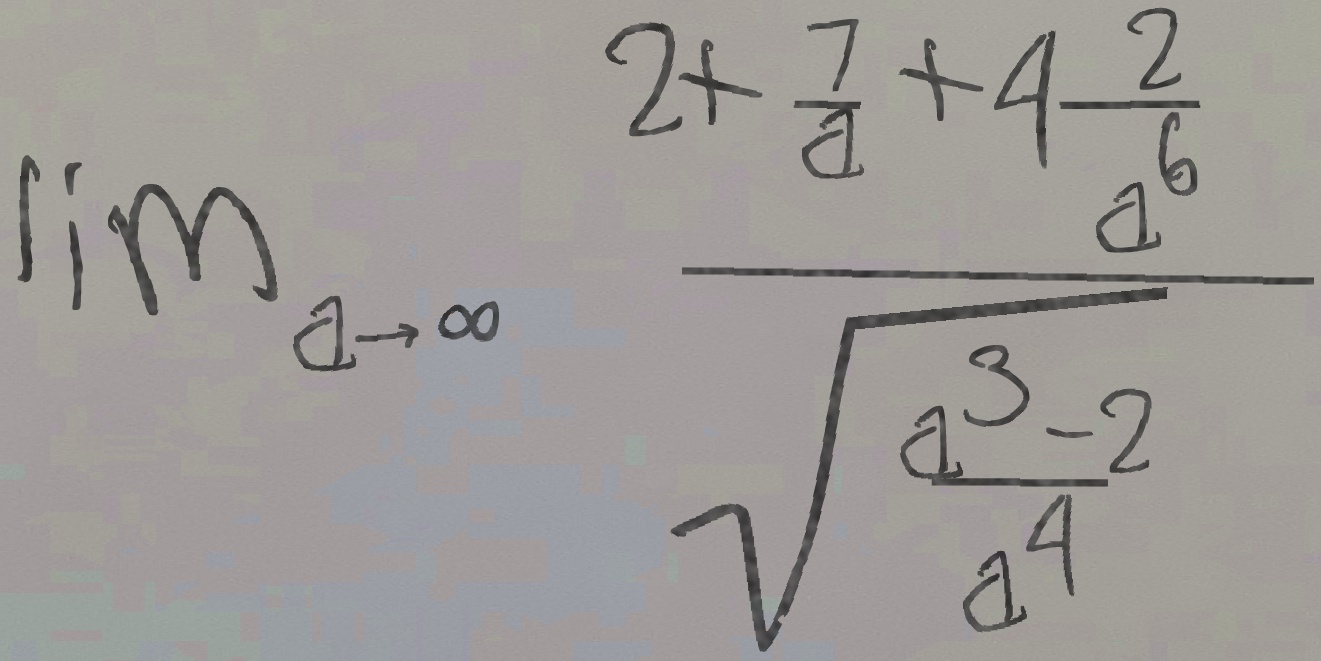 \lim_{a \to \infty} \frac{2 + \frac{7}{a} + 4 \frac{2}{a^6}}{\sqrt{\frac{a^3 - 2}{a^4}}}